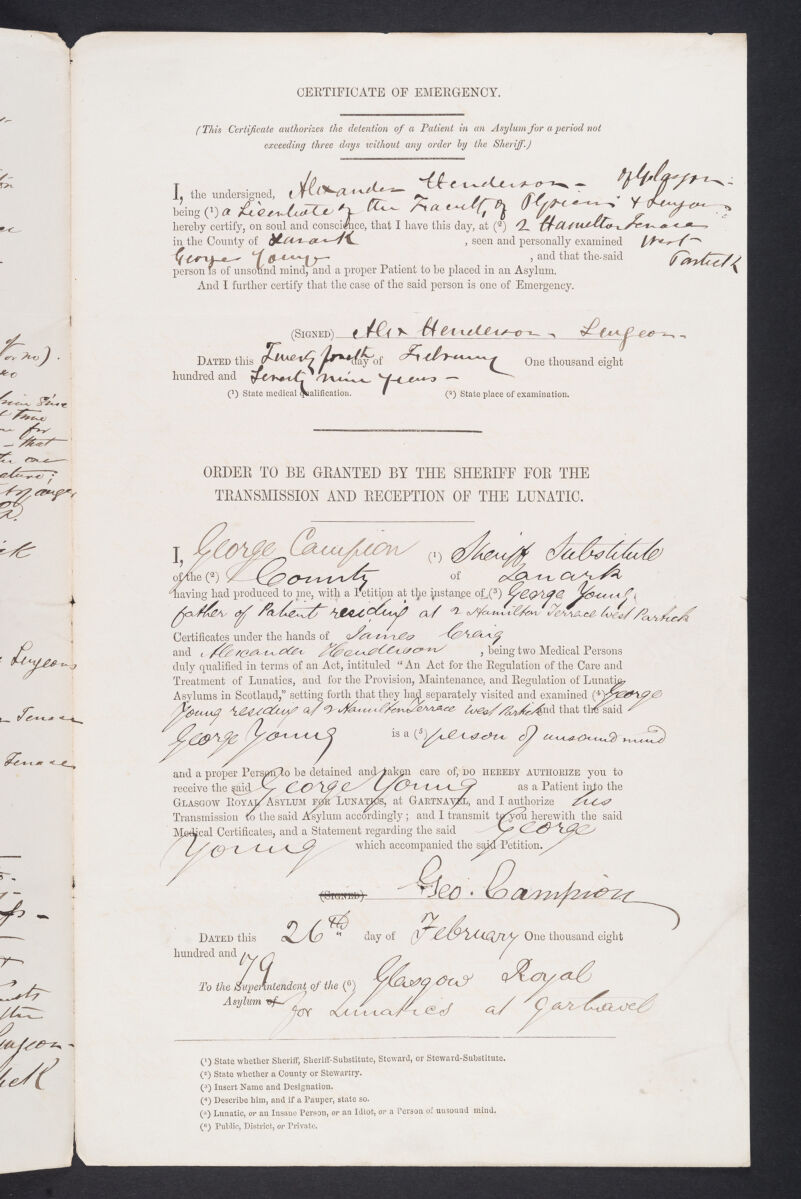 CERTIFICATE OF EMERGENCY.
(This Certificate authorizes the detention of a Patient in an Asylum for a period not
exceeding three days without any order by the Sheriff.)
I, the undersigned, Alexander Henderson - of Glasgow -
being (1) a Licentiate of the Faculty of & Surgeons
hereby certify, on soul and conscience, that I have this day, at (2) 2 Hamilton Terrace
in the County of Lanark , seen and personally examined West
George Young , and that the said Partick
person is of unsound mind, and a proper Patient to be placed in an Asylum.
And I further certify that the case of the said person is one of Emergency.
(SIGNED) Alex Henderson - Surgeon -
DATED this Twenty fourth day of February One thousand eight
hundred and Seventy nine years -
(1) State medical qualification. (2) State place of examination.
ORDER TO BE GRANTED BY THE SHERIFF FOR THE
TRANSMISSION AND RECEPTION OF THE LUNATIC.
I, George Campion (1) Sheriff Substitute
of the (2) County of Lanark
having had produced to me, with a Petition at the instance of (3) George Young,
father of Patient residing at 2 Hamilton Terrace West Partick
Certificates under the hands of James Craig
and Alexander Henderson , being two Medical Persons
duly qualified in terms of an Act, intituled "An Act for the Regulation of the Care and
Treatment of Lunatics, and for the Provision, Maintenance, and Regulation of Lunatic
Asylums in Scotland," setting forth that they had separately visited and examined (4) George
Young residing at 2 Hamilton Terrace West Partick and that the said
George Young is a (5) person of unsound mind
and a proper Person to be detained and taken care of, DO HEREBY AUTHORIZE you to
receive the said George Young as a Patient into the
GLASGOW ROYAL ASYLUM FOR LUNATICS, at GARTNAVEL, and I authorize his
Transmission to the said Asylum accordingly; and I transmit to you herewith the said
Medical Certificates, and a Statement regarding the said George
Young which accompanied the said Petition.
(SIGNED) Geo. Campion
DATED this 26th day of February One thousand eight
hundred and 79
To the Superintendent of the (6) Glasgow Royal
Asylum of for Lunatics at Gartnavel
(1) State whether Sheriff, Sheriff-Substitute, Steward, or Steward-Substitute.
(2) State whether a County or Stewartry.
(3) Insert Name and Designation.
(4) Describe him, and if a Pauper, state so.
(5) Lunatic, or an Insane Person, or an Idiot, or a Person of unsound mind.
(6) Public, District, or Private.